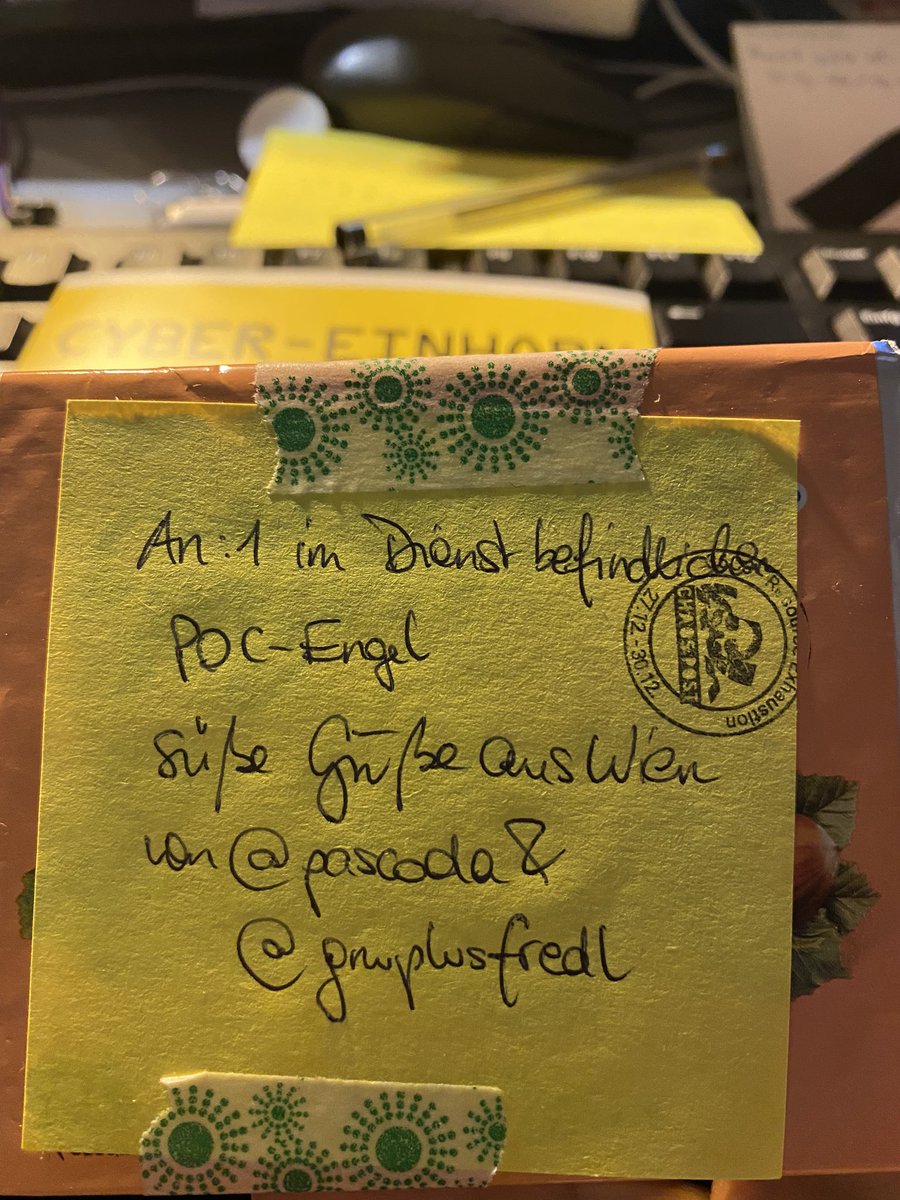 CYBER-EINHORN
An: 1 im Dienst befindlichen
POC-Engel
süße Grüße aus Wien
von @pascoda &
@gnuplusfredl
Resource Exhaustion
27.12. - 30.12.
CHAOS
POST